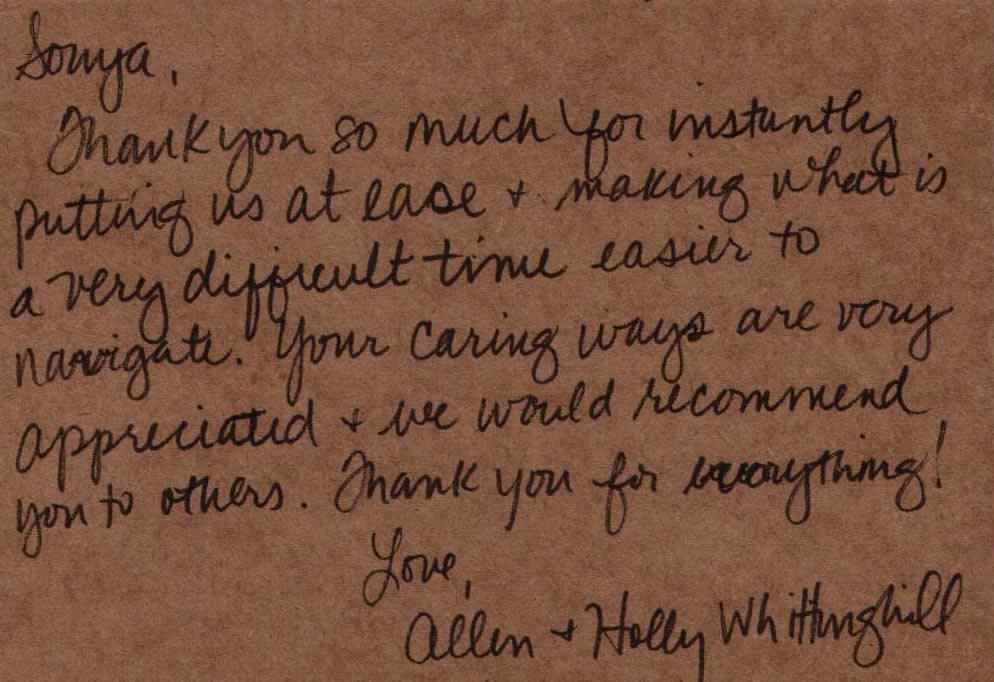 Sonya,
Thank you so much for instantly
putting us at ease + making what is
a very difficult time easier to
navigate. Your caring ways are very
appreciated + we would recommend
you to others. Thank you for everything!
Love,
Allen + Holly Whittinghill